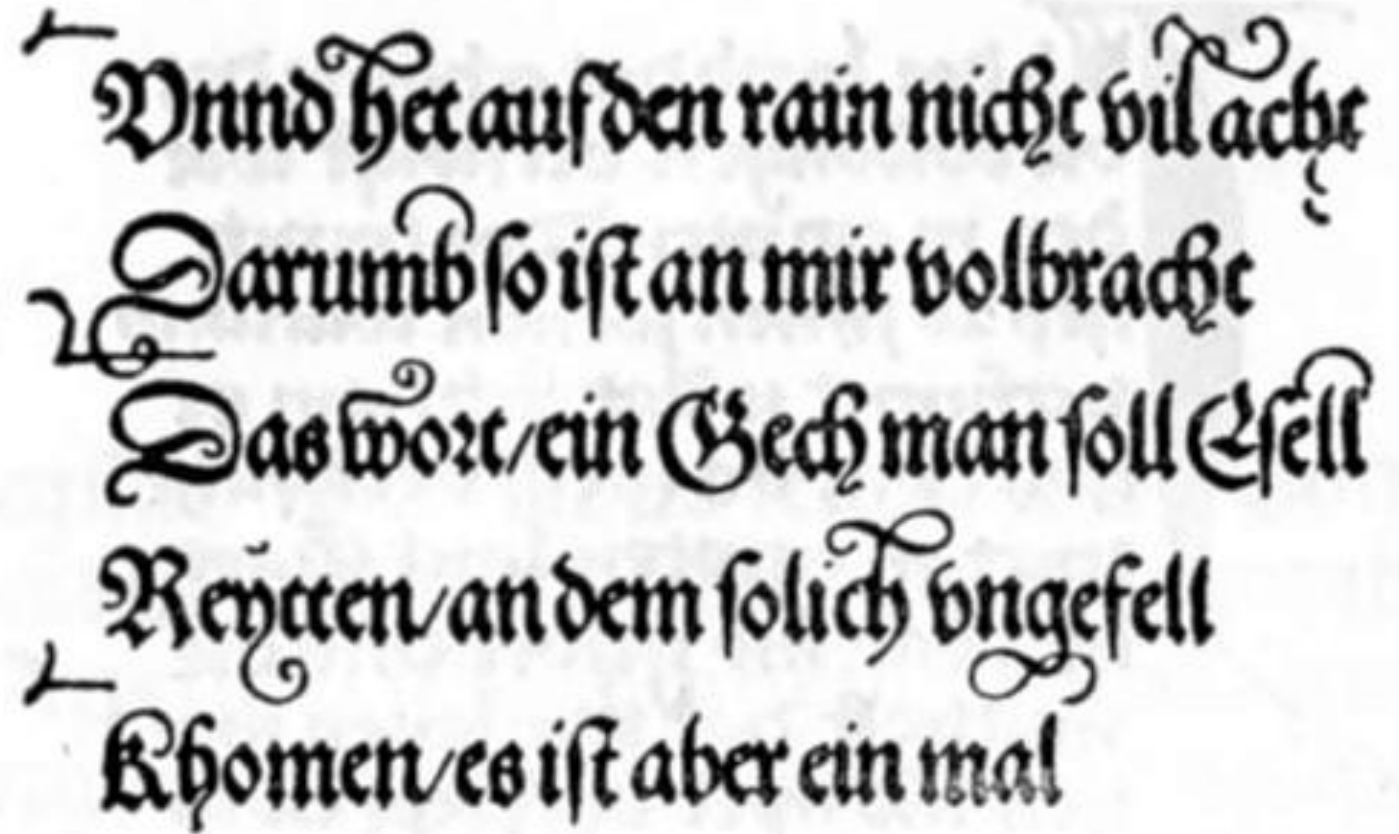 Vnnd het auf den rain nicht vil acht
Darumb so ist an mir volbracht
Das wort/ ein Gech man soll Esell
Reÿtten/ an dem solich vngefell
Khomen/ es ist aber ein mal